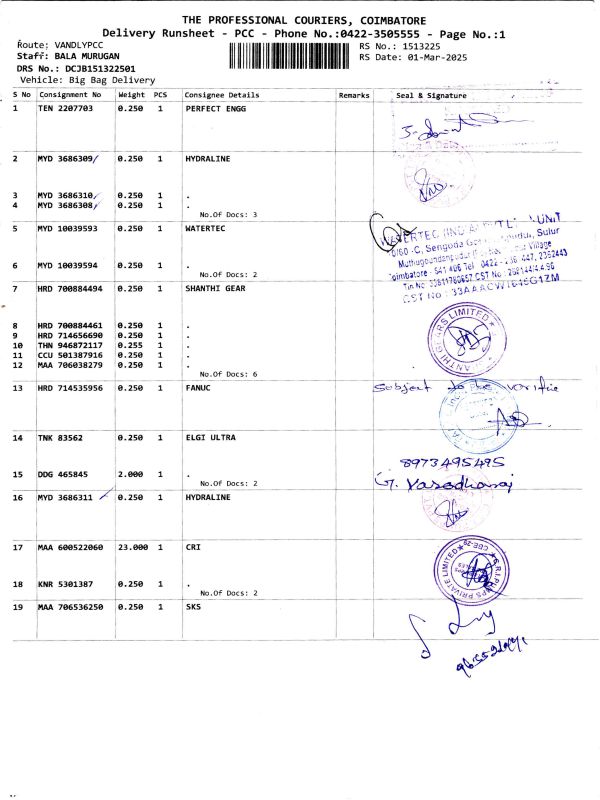 THE PROFESSIONAL COURIERS, COIMBATORE
Delivery Runsheet - PCC - Phone No.:0422-3505555 - Page No.:1
Route: VANDLYPCC
Staff: BALA MURUGAN
DRS No.: DCJB151322501
Vehicle: Big Bag Delivery
RS No.: 1513225
RS Date: 01-Mar-2025
S No Consignment No Weight PCS Consignee Details Remarks Seal & Signature
1 TEN 2207703 0.250 1 PERFECT ENGG
2 MYD 3686309 0.250 1 HYDRALINE
3 MYD 3686310 0.250 1 .
4 MYD 3686308 0.250 1 .
No.Of Docs: 3
5 MYD 10039593 0.250 1 WATERTEC
6 MYD 10039594 0.250 1 .
No.Of Docs: 2
7 HRD 700884494 0.250 1 SHANTHI GEAR
8 HRD 700884461 0.250 1 .
9 HRD 714656690 0.250 1 .
10 THN 946872117 0.255 1 .
11 CCU 501387916 0.250 1 .
12 MAA 706038279 0.250 1 .
No.Of Docs: 6
13 HRD 714535956 0.250 1 FANUC
Subject to be
14 TNK 83562 0.250 1 ELGI ULTRA
8973495495
15 DDG 465845 2.000 1 .
No.Of Docs: 2
G. Varadharaj
16 MYD 3686311 0.250 1 HYDRALINE
17 MAA 600522060 23.000 1 CRI
PRIVATE LIMITED
18 KNR 5301387 0.250 1 .
No.Of Docs: 2
19 MAA 706536250 0.250 1 SKS